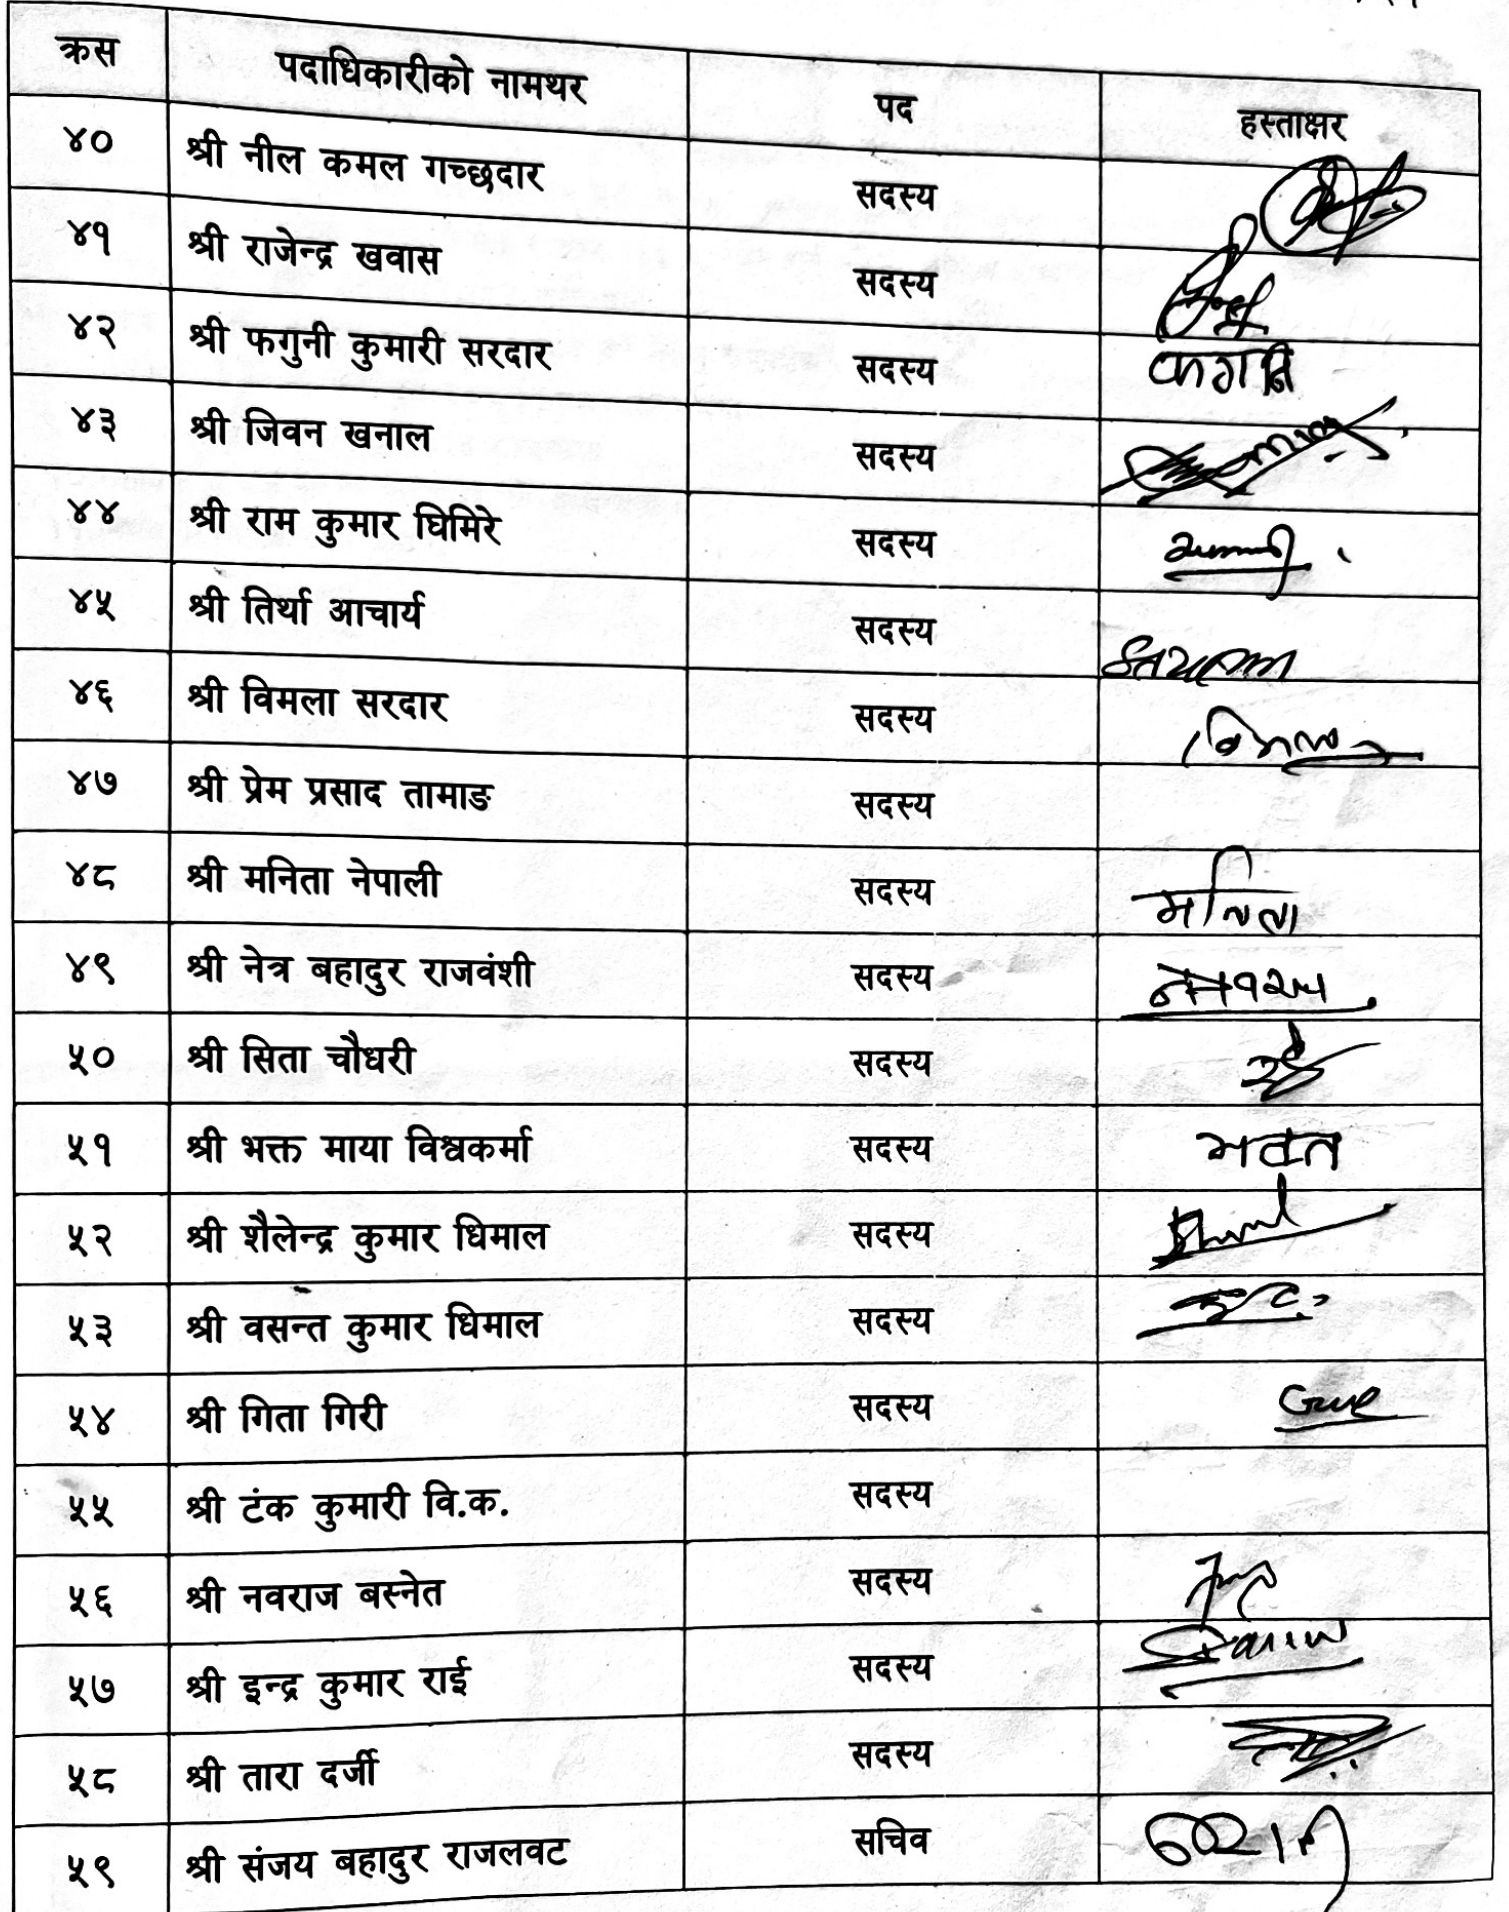 क्रस पदाधिकारीको नामथर पद हस्ताक्षर
४० श्री नील कमल गच्छदार सदस्य
४१ श्री राजेन्द्र खवास सदस्य
४२ श्री फगुनी कुमारी सरदार सदस्य
४३ श्री जिवन खनाल सदस्य
४४ श्री राम कुमार घिमिरे सदस्य
४५ श्री तिर्था आचार्य सदस्य
४६ श्री विमला सरदार सदस्य
४७ श्री प्रेम प्रसाद तामाङ सदस्य
४८ श्री मनिता नेपाली सदस्य मनिता
४९ श्री नेत्र बहादुर राजवंशी सदस्य
५० श्री सिता चौधरी सदस्य
५१ श्री भक्त माया विश्वकर्मा सदस्य
५२ श्री शैलेन्द्र कुमार धिमाल सदस्य
५३ श्री वसन्त कुमार धिमाल सदस्य
५४ श्री गिता गिरी सदस्य
५५ श्री टंक कुमारी वि.क. सदस्य
५६ श्री नवराज बस्नेत सदस्य
५७ श्री इन्द्र कुमार राई सदस्य
५८ श्री तारा दर्जी सदस्य
५९ श्री संजय बहादुर राजलवट सचिव